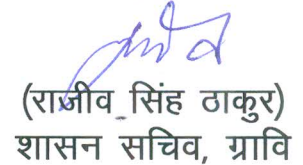 (राजीव सिंह ठाकुर)
शासन सचिव, ग्रावि